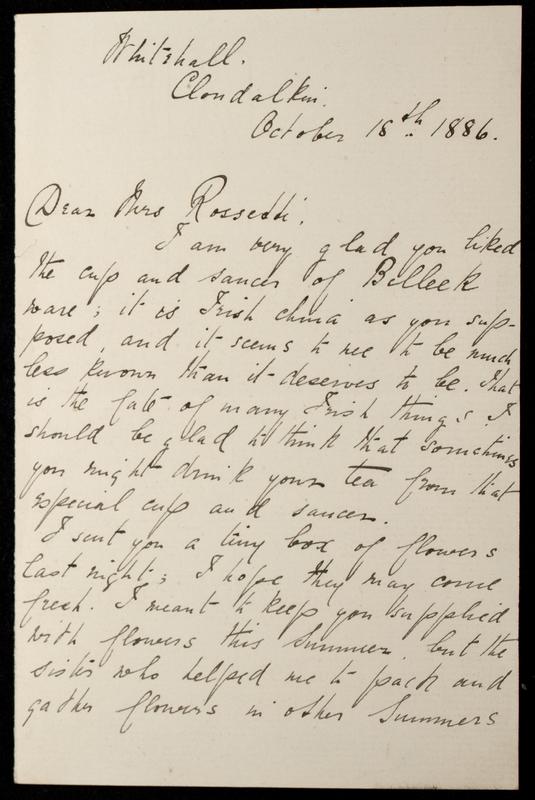 Whitehall.
Clondalkin.
October 18th. 1886.
Dear Mrs Rossetti,
I am very glad you liked
the cup and saucer of Belleek
ware; it is Irish china as you sup-
posed, and it seems to me to be much
less known than it deserves to be. That
is the fate of many Irish things. I
should be glad to think that sometimes
you might drink your tea from that
especial cup and saucer.
I sent you a tiny box of flowers
last night; I hope they may come
fresh. I meant to keep you supplied
with flowers this Summer, but the
sister who helped me to pack and
gather flowers in other Summers